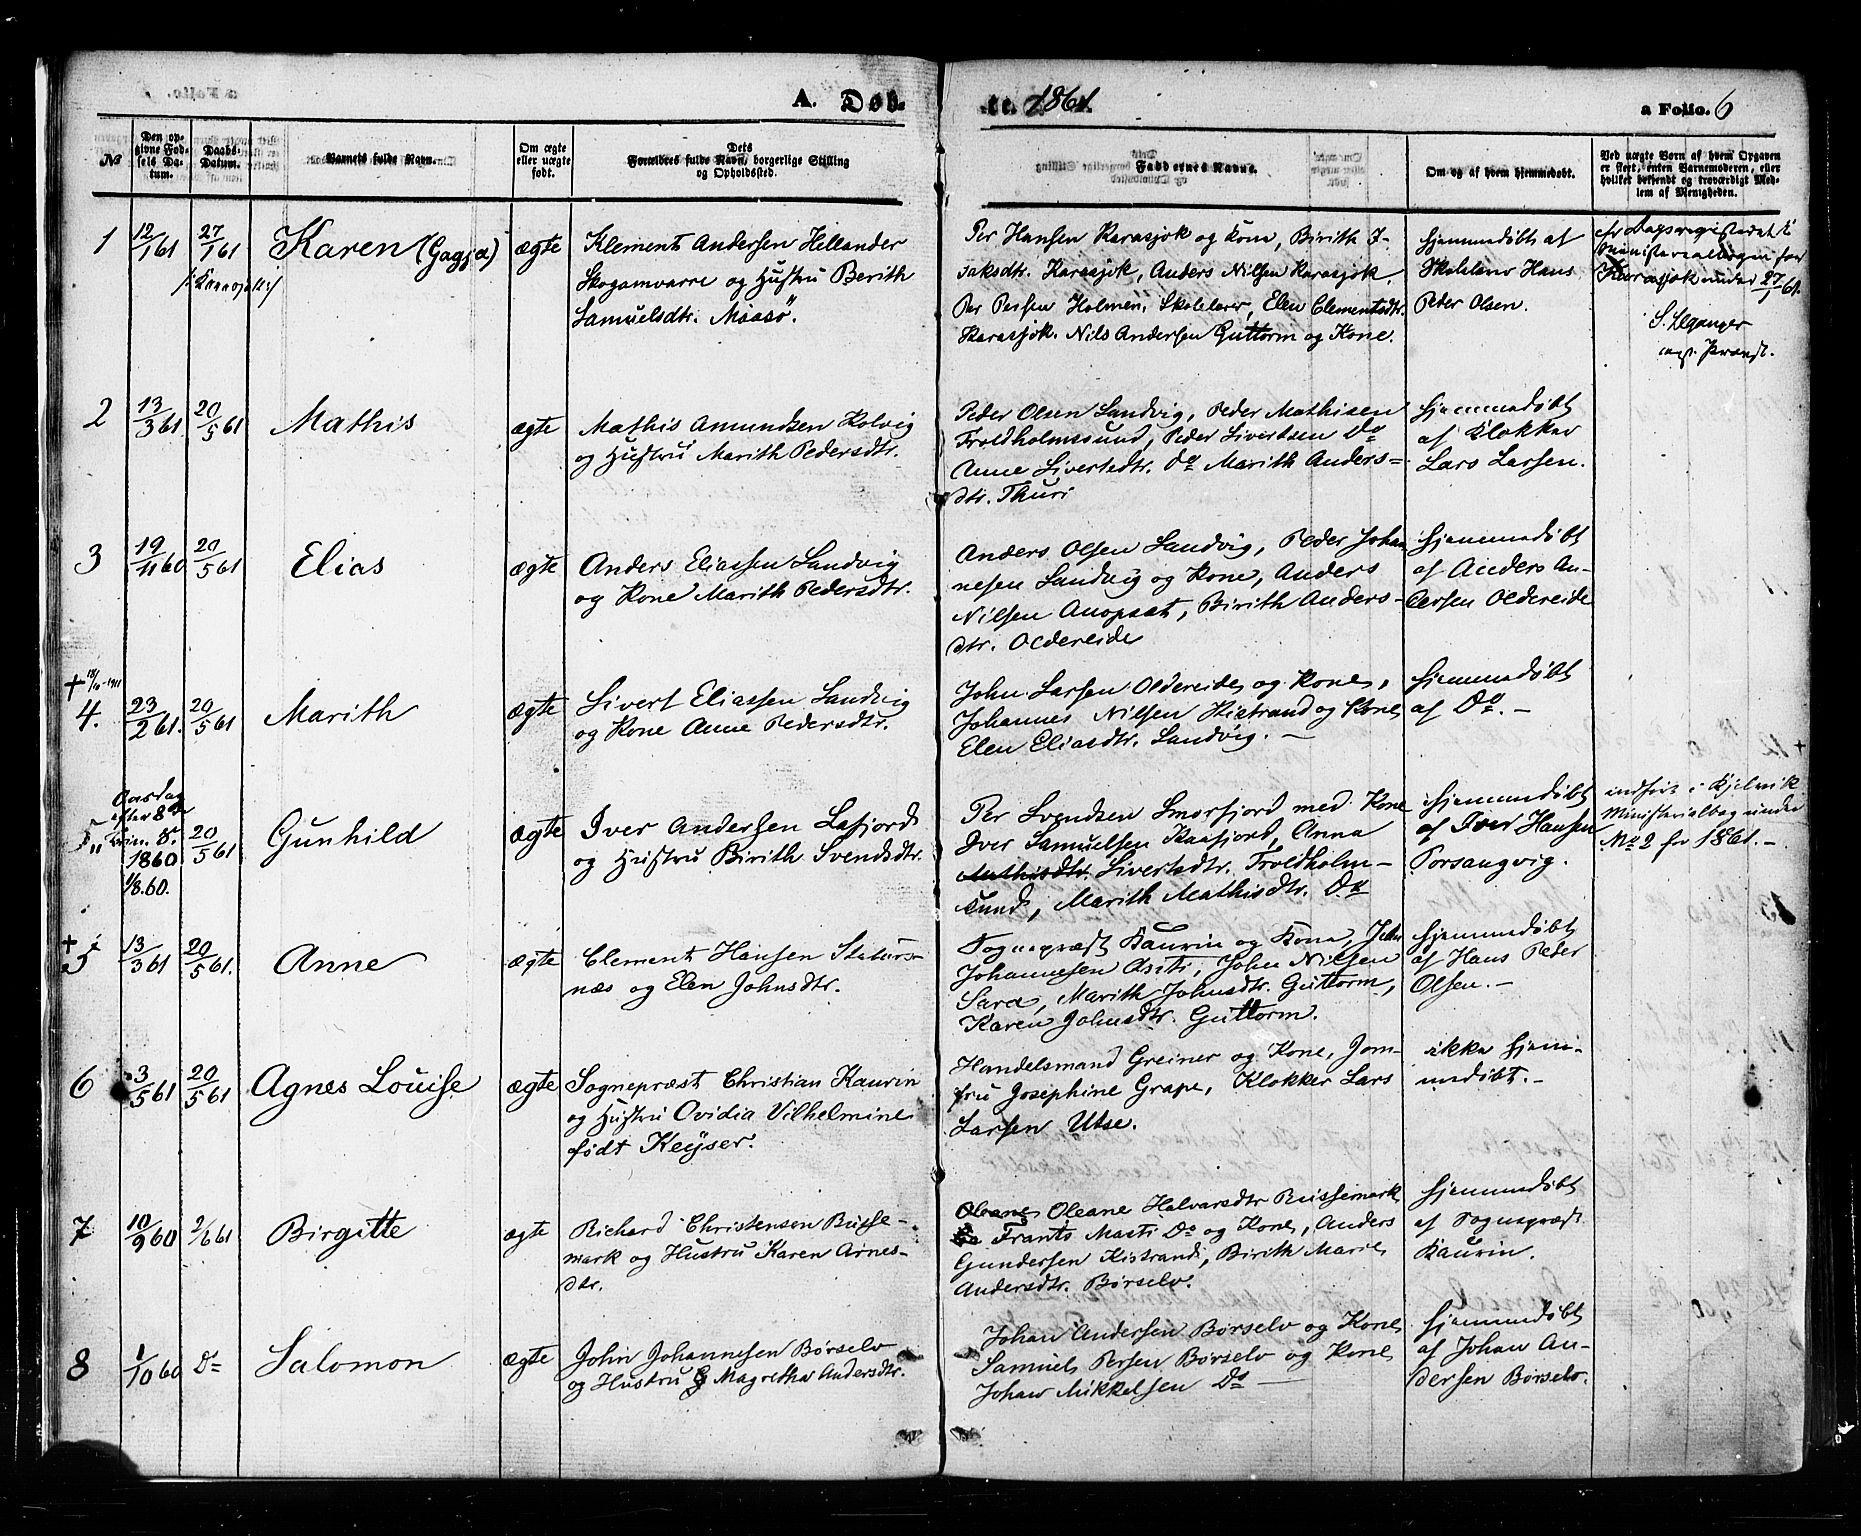 A. Døb-
te. 1861.
a Folio. 6
№
Den op-
givne Fød-
sels Da-
tum.
Daabs-
Datum.
Barnets fulde Navn.
Om ægte
eller uægte
født.
Dets
Forældres fulde Navn, borgerlige Stilling
og Opholdssted.
Faddernes Navne.
Om og af hvem hjemmedøbt.
Ved uægte Børn af hvem Opgaven
er skeet, enten Barnemoderen, eller
hvilket bekjendt og troværdigt Med-
lem af Menigheden.
1
12/1 61
27/1 61
Karen (Gagja)
ægte
Klement Andersen Hillander
Skoganvarre og Hustru Berith
Samuelsdtr. Maasö.
Per Hansen Karasjok og Kone, Birith I-
saksdtr. Karasjok, Anders Nilsen Karasjok,
Per Persen Holmen, Skolelærer, Elen Clementsdtr.
Karasjok. Nils Andersen Guttorm og Kone.
Hjemmedøbt af
Skolelærer Hans
Peder Olsen.
Ministerialbogen for
Karasjok under 27/1 61.
2
13/3 61
20/5 61
Mathis
ægte
Mathis Amundsen Kolvig
og Hustru Marith Pedersdtr.
Peder Olsen Sandvig, Peder Mathisen
Troldholmssund, Peder Sivertsen Do
Anne Sivertsdtr. Do Marith Anders-
dtr. Thuri
Hjemmedøbt
af Klokker
Lars Larsen.
3
19/11 60
20/5 61
Elias
ægte
Anders Eliassen Sandvig
og Kone Marith Pedersdtr.
Anders Olsen Sandvig, Peder Johan
nesen Sandvig og Kone, Anders
Nilsen Anopsat, Birith Anders-
dtr. Oldereide
Hjemmedøbt
af Anders An-
dersen Oldereide
+ 18/10-1911
4.
23/2 61.
20/5 61
Marith
ægte
Sivert Eliassen Sandvig
og Kone Anne Pedersdtr.
John Larsen Oldereide og Kone,
Johannes Nilsen Kistrand og Kone
Elen Eliasdtr. Sandvig. –
Hjemmedøbt
af Do. –
5
Onsdag
efter 8de
Trin. S.
1860
1/8.60.
20/5 61
Gunhild
ægte
Iver Andersen Lafjord
og Hustru Birith Svendsdtr.
Per Svendsen Smorfjord med Kone
Iver Samuelsen Kaafjord, Anna
Mathisdtr. Sivertsdtr. Troldholm-
sund, Marith Mathisdtr. Do
Hjemmedøbt
af Iver Hansen
Porsangvig.
indført i Kjelvik
Ministerialbog under
No 2 for 1861. –
+
5
13/3 61
20/5 61.
Anne
ægte
Clement Hansen Staturs-
næs og Elen Johnsdtr.
Sognepræst Kaurin og Kone, John
Johannesen Asiti, John Nilsen
Sara, Marith Johnsdtr. Guttorm,
Karen Johnsdtr. Guttorm.
Hjemmedøbt
af Hans Peder
Olsen. –
6
3/5 61
20/5 61
Agnes Louise
ægte
Sognepræst Christian Kaurin
og Hustru Ovidia Vilhelmine
født Keÿser.
Handelsmand Greiner og Kone, Jom-
fru Josephine Grape, Klokker Lars
Larsen Utse.
ikke hjem-
medøbt. –
7
10/9 60
2/6 61
Birgitte
ægte
Richard Christensen Busse-
mark og Hustru Karen Arnes-
dtr.
Oleane Oleane Halvarsdtr Russemark
Frants Masti Do og Kone, Anders
Gundersen Kistrand, Birith Marie
Andersdtr. Børselv.
Hjemmedøbt
af Sognepræst
Kaurin.
8
1/10 60
Do
Salomon
ægte
John Johannesen Børselv
og Hustru Magretha Andersdtr.
Johan Andersen Børselv og Kone
Samuel Persen Børselv og Kone
Johan Mikkelsen Do –
Hjemmedøbt
af Johan An-
dersen Børselv.